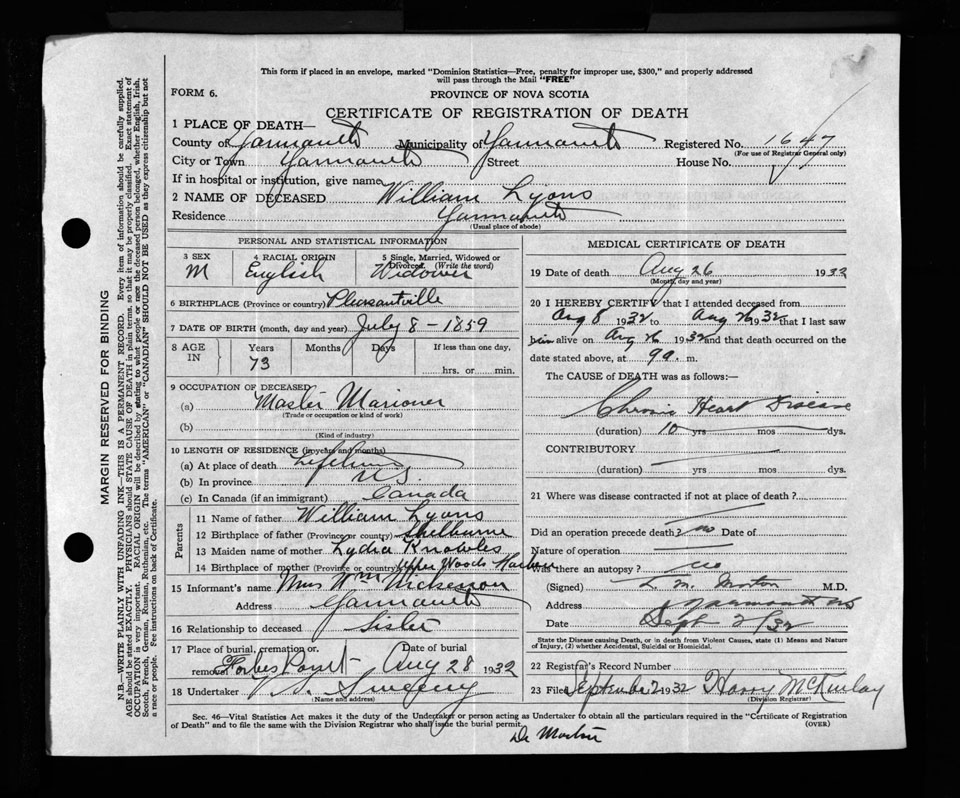 This form if placed in an envelope, marked "Dominion Statistics—Free, penalty for improper use, $300," and properly addressed
will pass through the Mail "FREE"
FORM 6.
PROVINCE OF NOVA SCOTIA
CERTIFICATE OF REGISTRATION OF DEATH
1 PLACE OF DEATH—
County of Yarmouth Municipality of Yarmouth Registered No. 1647
(For use of Registrar General only)
City or Town Yarmouth Street House No.
If in hospital or institution, give name
2 NAME OF DECEASED William Lyons
Residence Yarmouth
(Usual place of abode)
PERSONAL AND STATISTICAL INFORMATION
3 SEX
M
4 RACIAL ORIGIN
English
5 Single, Married, Widowed or
Divorced. (Write the word)
Widower
6 BIRTHPLACE (Province or country) Pleasantville
7 DATE OF BIRTH (month, day and year) July 8 - 1859
8 AGE
IN
Years
73
Months
Days
If less than one day,
hrs. or min.
9 OCCUPATION OF DECEASED
(a) Master Marioner
(Trade or occupation or kind of work)
(b)
(Kind of industry)
10 LENGTH OF RESIDENCE (in years and months)
(a) At place of death Lifetime
(b) In province N S.
(c) In Canada (if an immigrant) Canada
Parents
11 Name of father William Lyons
12 Birthplace of father (Province or country) Shelburne
13 Maiden name of mother Lydia Knowles
14 Birthplace of mother (Province or country) Upper Woods Harbour
15 Informant's name Mrs Wm Nickerson
Address Yarmouth
16 Relationship to deceased Sister
17 Place of burial, cremation or removal Forbes Point
Date of burial Aug 28 1932
18 Undertaker V. S. Sweeny
(Name and address)
MEDICAL CERTIFICATE OF DEATH
19 Date of death Aug 26 1932
(Month, day and year)
20 I HEREBY CERTIFY that I attended deceased from
Aug 8 1932 to Aug 26 1932 that I last saw
him alive on Aug 26 1932 and that death occurred on the
date stated above, at 9 a. m.
The CAUSE of DEATH was as follows:—
Chronic Heart Disease
(duration) 10 yrs mos dys.
CONTRIBUTORY
(duration) yrs mos dys.
21 Where was disease contracted if not at place of death?
Did an operation precede death? no Date of
Nature of operation
Was there an autopsy? no
(Signed) L. M. Morton M.D.
Address Yarmouth NS
Date Sept 2/32
State the Disease causing Death, or in death from Violent Causes, state (1) Means and Nature
of Injury, (2) whether Accidental, Suicidal or Homicidal.
22 Registrar's Record Number
23 Filed September 2 1932 Harry McKinlay
(Division Registrar)
Sec. 46—Vital Statistics Act makes it the duty of the Undertaker or person acting as Undertaker to obtain all the particulars required in the "Certificate of Registration
of Death" and to file the same with the Division Registrar who shall issue the burial permit.
(OVER)
Dr Morton
MARGIN RESERVED FOR BINDING
N.B.—WRITE PLAINLY WITH UNFADING INK—THIS IS A PERMANENT RECORD. Every item of information should be carefully supplied.
AGE should be stated EXACTLY. PHYSICIANS should STATE CAUSE OF DEATH in plain terms, so that it may be properly classified. Exact statement of
OCCUPATION is very important. RACIAL ORIGIN will be described by stating to what people or race the deceased person belonged, whether English, Irish,
Scotch, French, German, Russian, Ruthenian, etc. The terms "AMERICAN" or "CANADIAN" SHOULD NOT BE USED as they express citizenship but not
a race or people. Fee instructions on back of Certificate.